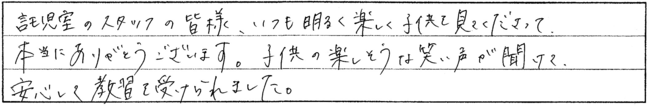 託児室のスタッフの皆様、いつも明るく楽しく子供を見てくださって、
本当にありがとうございます。子供の楽しそうな笑い声が聞けて、
安心して教習を受けられました。